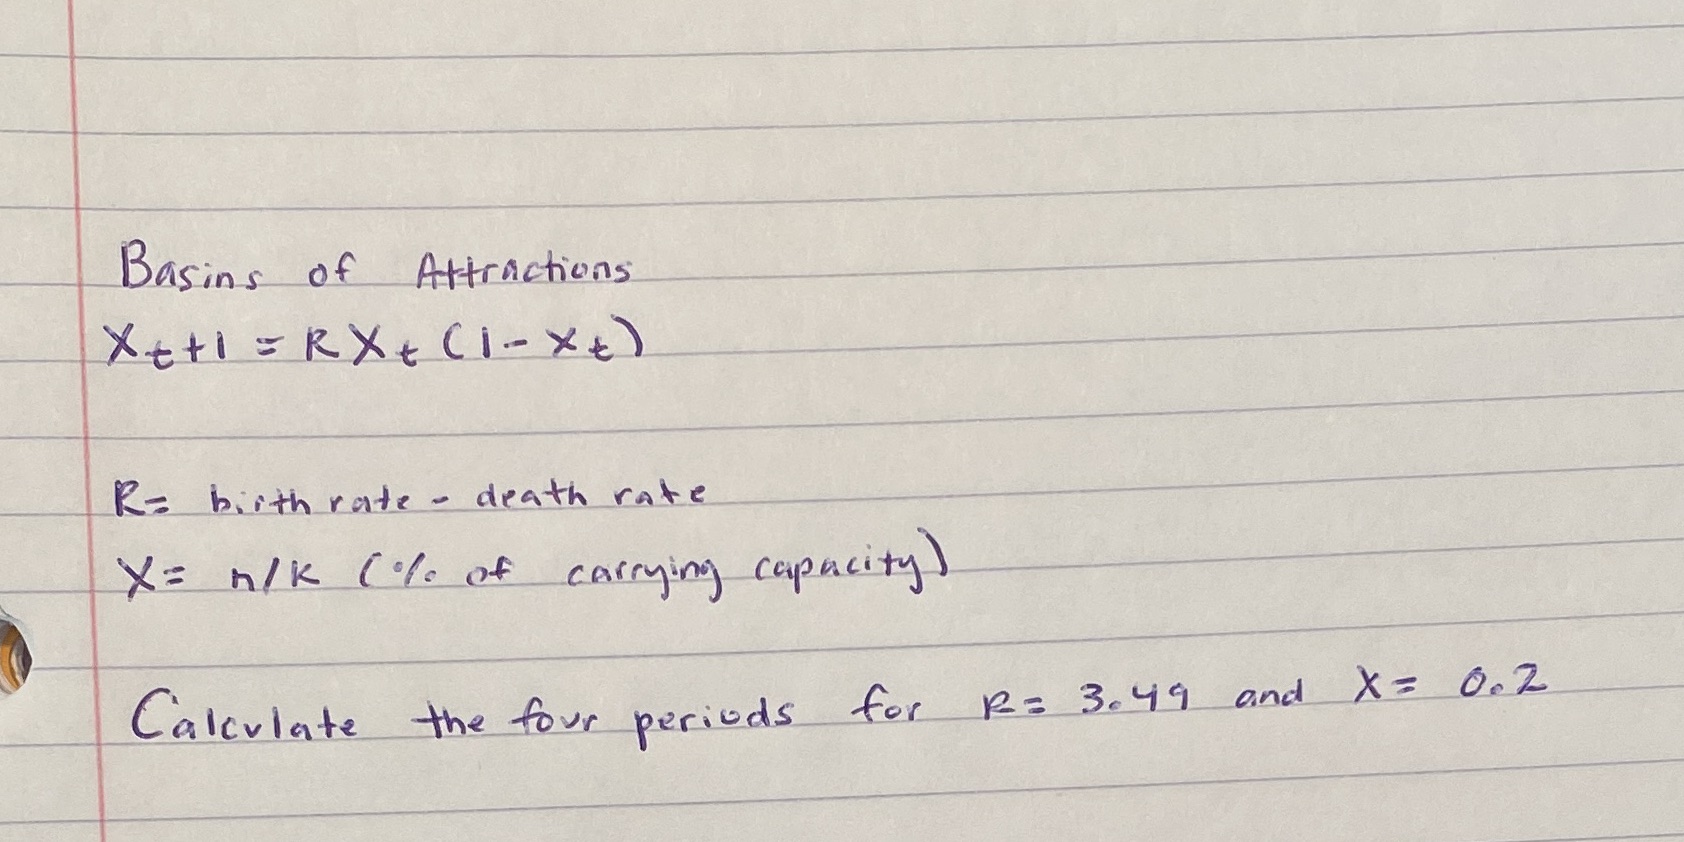 Basins of Attractions
Xt+1 = RXt (1-xt)
R= birth rate - death rate
X= n/k (% of carrying capacity)
Calculate the four periods for R= 3.49 and X= 0.2